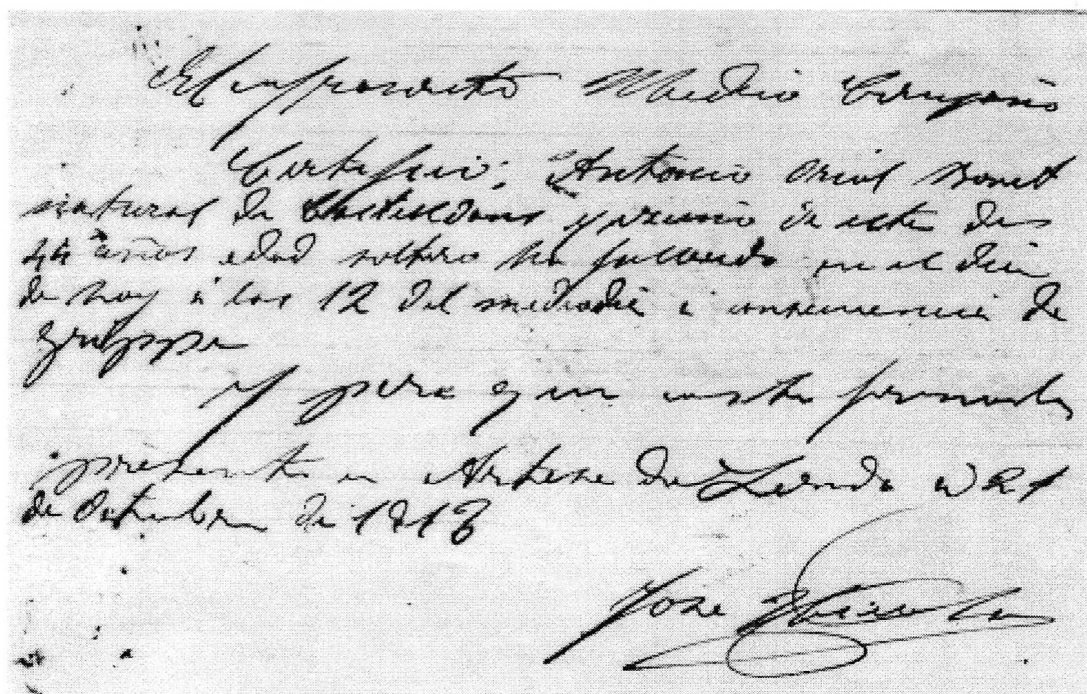 El infrascrito Medico Cirujano
Certifico: Antonio Oriol Bonet
natural de Castelldans y vecino de este de
44 años edad soltero ha fallecido en el dia
de hoy á las 12 del mediodia á consecuencia de
grippe
Y para que conste firmo la
presente en Artesa de Lerida a 21
de Octubre de 1918
Jose